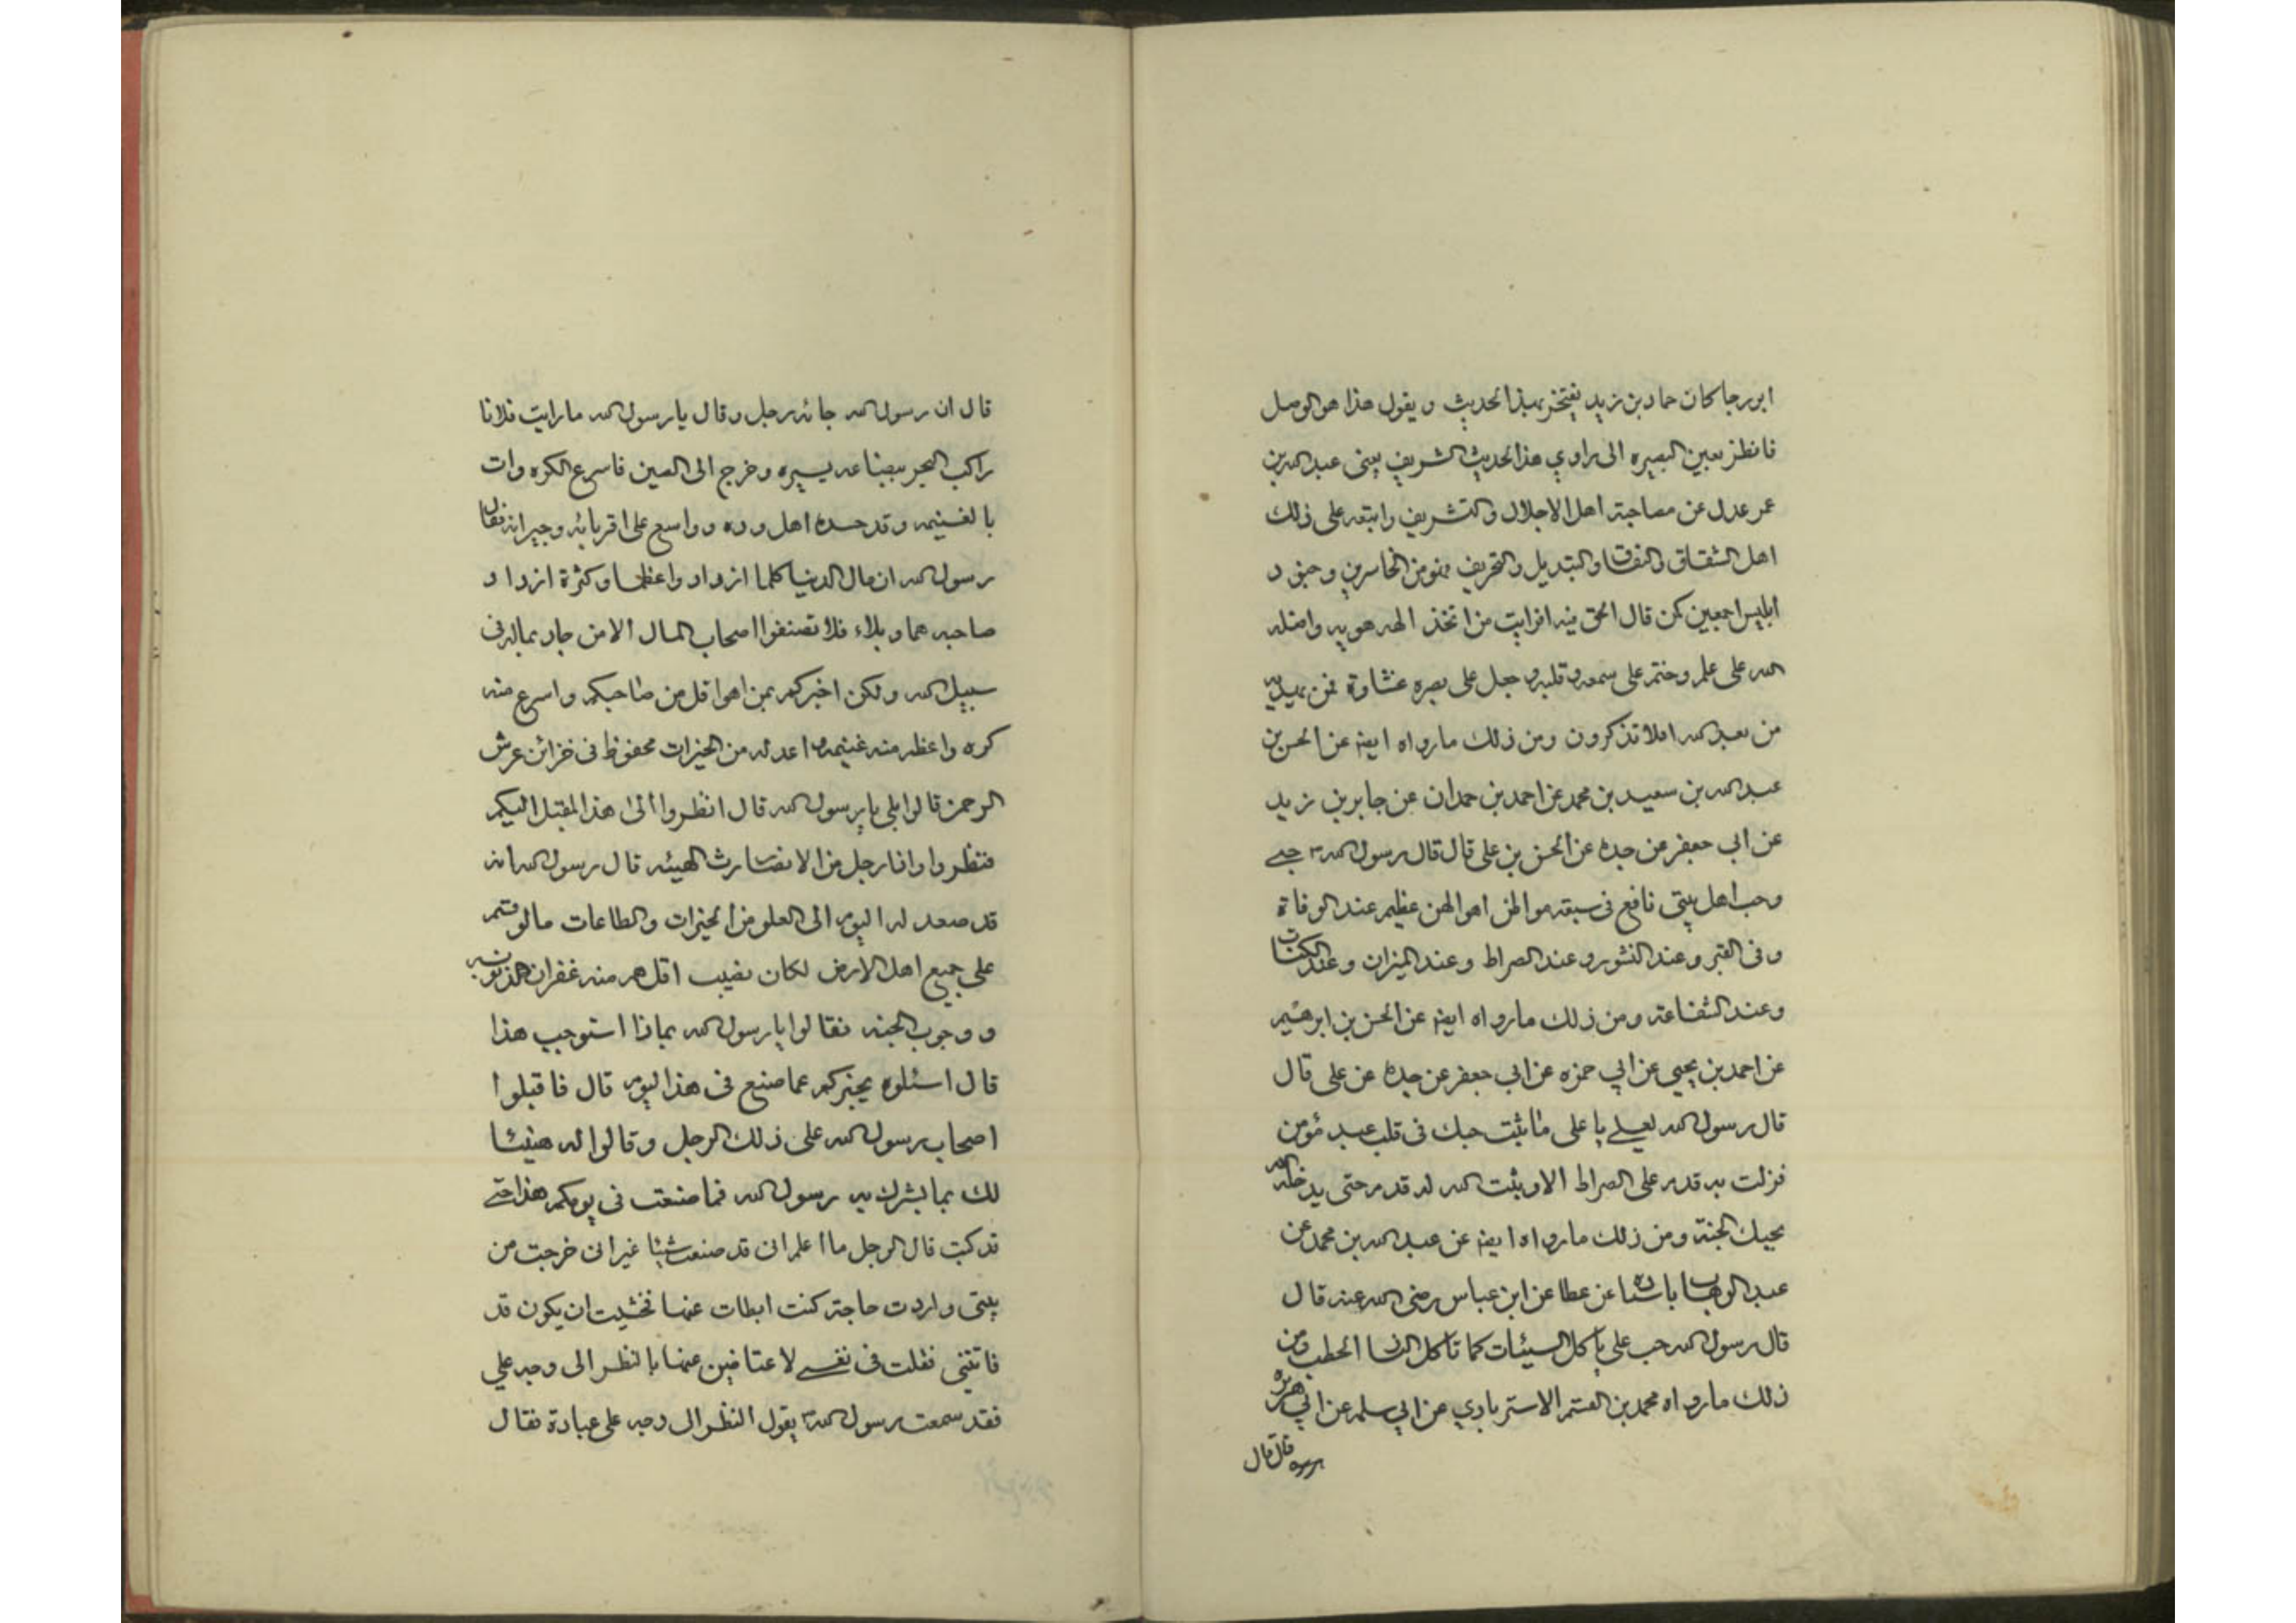 ابو رجا كان حماد بن زيد يفتخر بهذا الحديث و يقول هذا هو الوصل
فانظر بعين البصيره الى راوي هذا الحديث الشريف يعنى عبد الله بن
عمر عدل عن مصاحبة اهل الاجلال والتشريف واتبعه على ذلك
اهل الشقاق والنفاق والتبديل والتحريف فهو من الخاسرين وجنود
ابليس اجمعين كمن قال الحق فيه افرايت من اتخذ الهه هويه واضله
الله على علم وختم على سمعه وقلبه وجعل على بصره غشاوة فمن يهديه
من بعد الله افلا تذكرون ومن ذلك ما رواه ايضا عن الحسن بن
عبد الله بن سعيد بن محمد عن احمد بن حمدان عن جابر بن زيد
عن ابي جعفر عن جده عن الحسن بن على قال قال رسول الله حبى
وحب اهل بيتى نافع فى سبعة مواطن اهوالهن عظيم عند الوفاة
وفى القبر وعند النشور وعند الصراط وعند الميزان وعند الكتاب
وعند الشفاعة ومن ذلك ما رواه ايضا عن الحسن بن ابرهيم
عن احمد بن يحيى عن ابي حمزه عن ابي جعفر عن جده عن على قال
قال رسول الله لعلى يا على ما ثبت حبك فى قلب عبد مؤمن
فزلت به قدم على الصراط الا وثبت الله له قدم حتى يدخله الله
بحبك الجنة ومن ذلك ما رواه ايضا عن عبد الله بن محمد عن
عبد الوهاب باسناده عن عطا عن ابن عباس رضى الله عنه قال
قال رسول الله حب على ياكل السيئات كما تاكل النار الحطب ومن
ذلك ما رواه محمد بن القسم الاسترابادي عن ابي سلمه عن ابي هريره
قال قال
قال ان رسول الله جائه رجل وقال يا رسول الله ما رايت فلانا
راكب البحر ببضاعه يسيره وخرج الى الصين فاسرع الكره وات
بالغنيمه وقد حسده اهل وده وواسع على اقربائه وجيرانه فقال
رسول الله ان مال الدنيا كلما ازداد واعظما وكثرة ازداد
صاحبه هما وبلاء فلا تصنفوا اصحاب المال الا من جاد بماله فى
سبيل الله ولكن اخبركم بمن اهوا قل من صاحبكم واسرع منه
كره واعظم منه غنيمه وما اعد له من الخيرات محفوظ فى خزائن عرش
الرحمن قالوا بلى يا رسول الله قال انظروا الى هذا المقبل اليكم
فنظروا واذا رجل من الانصار رث الهيئه قال رسول الله انه
قد صعد له اليوم الى العلو من الخيرات والطاعات ما لو قسم
على جميع اهل الارض لكان نصيب اقلهم منه غفران الذنوب
ووجوب الجنه فقالوا يا رسول الله بماذا استوجب هذا
قال اسئلوه يخبركم عما صنع فى هذا اليوم قال فاقبلوا
اصحاب رسول الله على ذلك الرجل وقالوا له هنيئا
لك بما بشرك به رسول الله فما صنعت فى يومكم هذا حتى
قد كتب قال الرجل ما اعلم انى قد صنعت شيئا غير انى خرجت من
بيتى واردت حاجة كنت ابطات عنها فخشيت ان يكون قد
فاتتنى فقلت فى نفسى لاعتاضين عنها بالنظر الى وجه علي
فقد سمعت رسول الله يقول النظر الى وجه على عبادة فقال